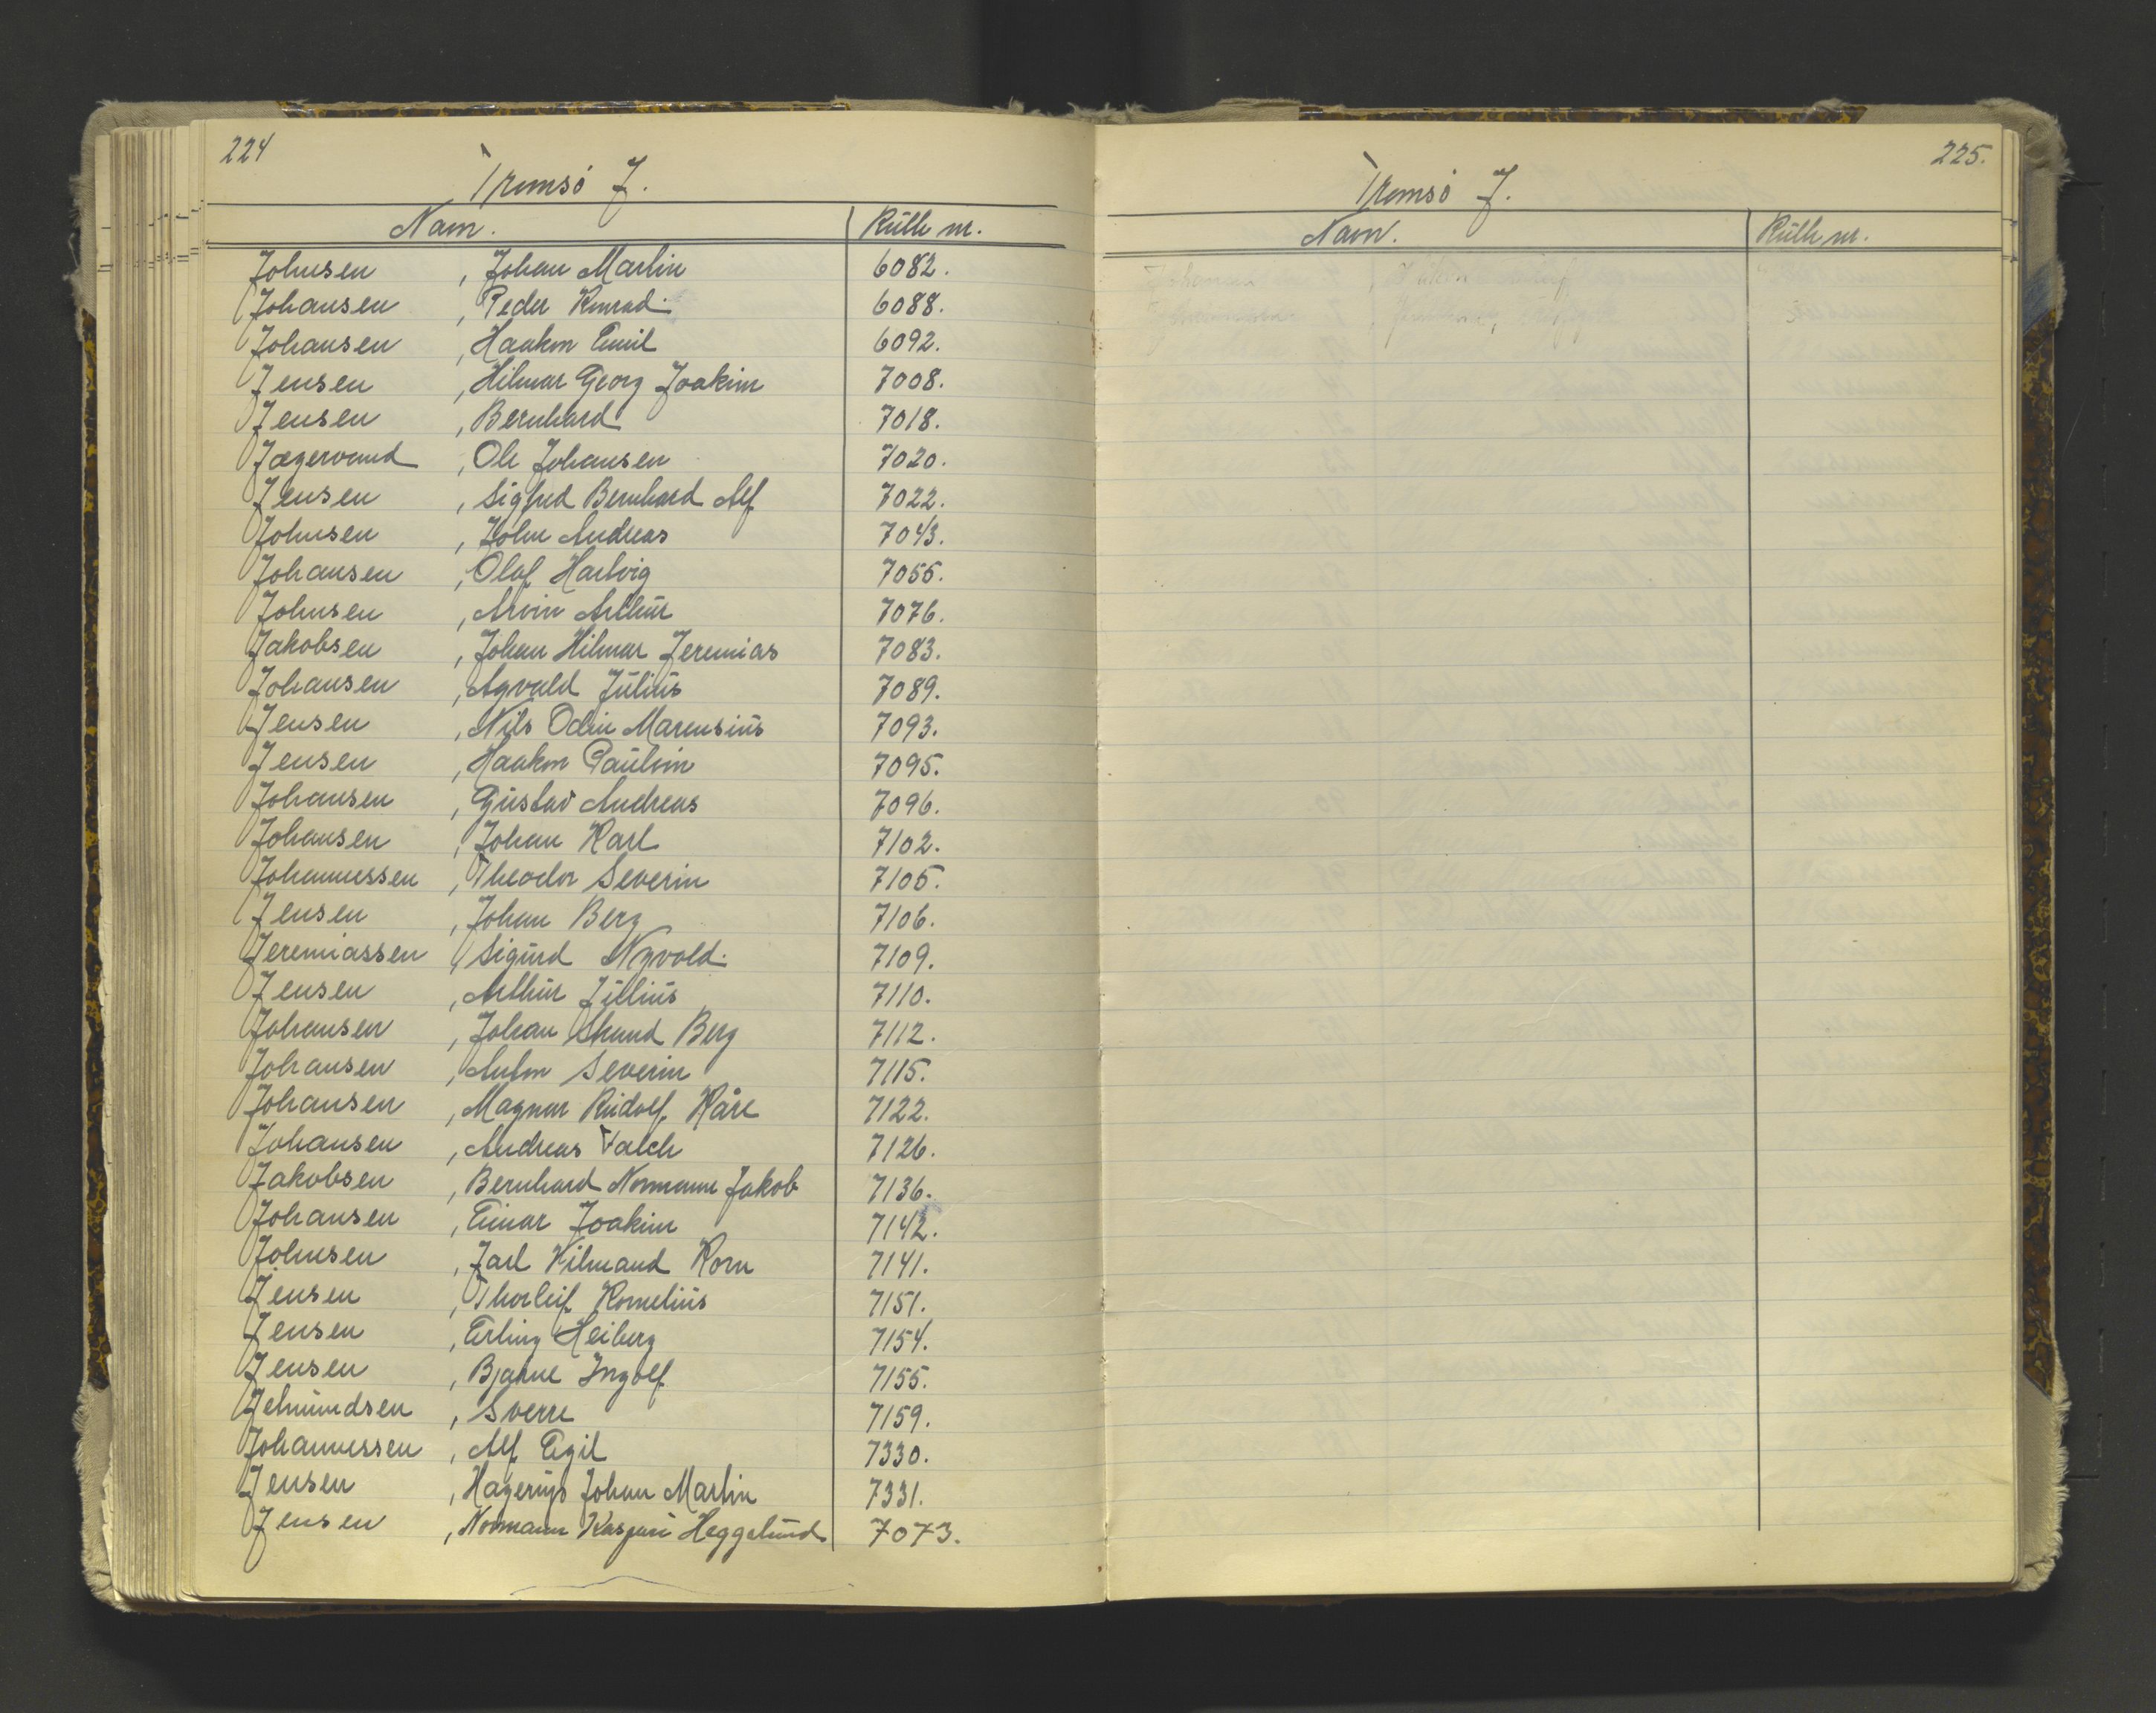 224
Tromsö J.
Navn. Rulle nr.
Johnsen , Johan Martin 6082.
Johansen , Peder Konrad. 6088.
Johansen , Haakon Emil 6092.
Jensen , Hilmar Georg Joakim 7008.
Jensen , Bernhard 7018.
Jægervand , Ole Johansen 7020.
Jensen , Sigfred Bernhard Alf 7022.
Johnsen , John Andreas 7043.
Johansen , Olaf Hartvig 7055.
Johnsen , Arvin Arthur 7076.
Jakobsen , Johan Hilmar Jeremias 7083.
Johansen , Agvald Julius 7089.
Jensen , Nils Odin Marensius 7093.
Jensen , Haakon Paulvin 7095.
Johansen , Gustav Andreas 7096.
Johansen , Johan Karl 7102.
Johannessen , Theodor Severin 7105.
Jensen , Johan Berg 7106.
Jeremiassen , Sigurd Nyvold. 7109.
Jensen , Arthur Jullius 7110.
Johansen , Johan Strand Berg 7112.
Johansen , Anton Severin 7115.
Johansen , Magnar Rudolf Kåre 7122.
Johansen , Andreas Valch 7126.
Jakobsen , Bernhard Normann Jakob 7136.
Johansen , Einar Joakim 7142.
Johnsen , Jarl Vilmand Korn 7141.
Jensen , Thorleif Kornelius 7151.
Jensen , Erling Heiberg 7154.
Jensen , Bjarne Ingolf 7155.
Jelmundsen , Sverre 7159.
Johannessen , Alf Egil 7330.
Jensen , Hagerup Johan Martin 7331.
Jensen , Normann Kaspari Heggelund 7073.
225.
Tromsö J.
Navn. Rulle nr.